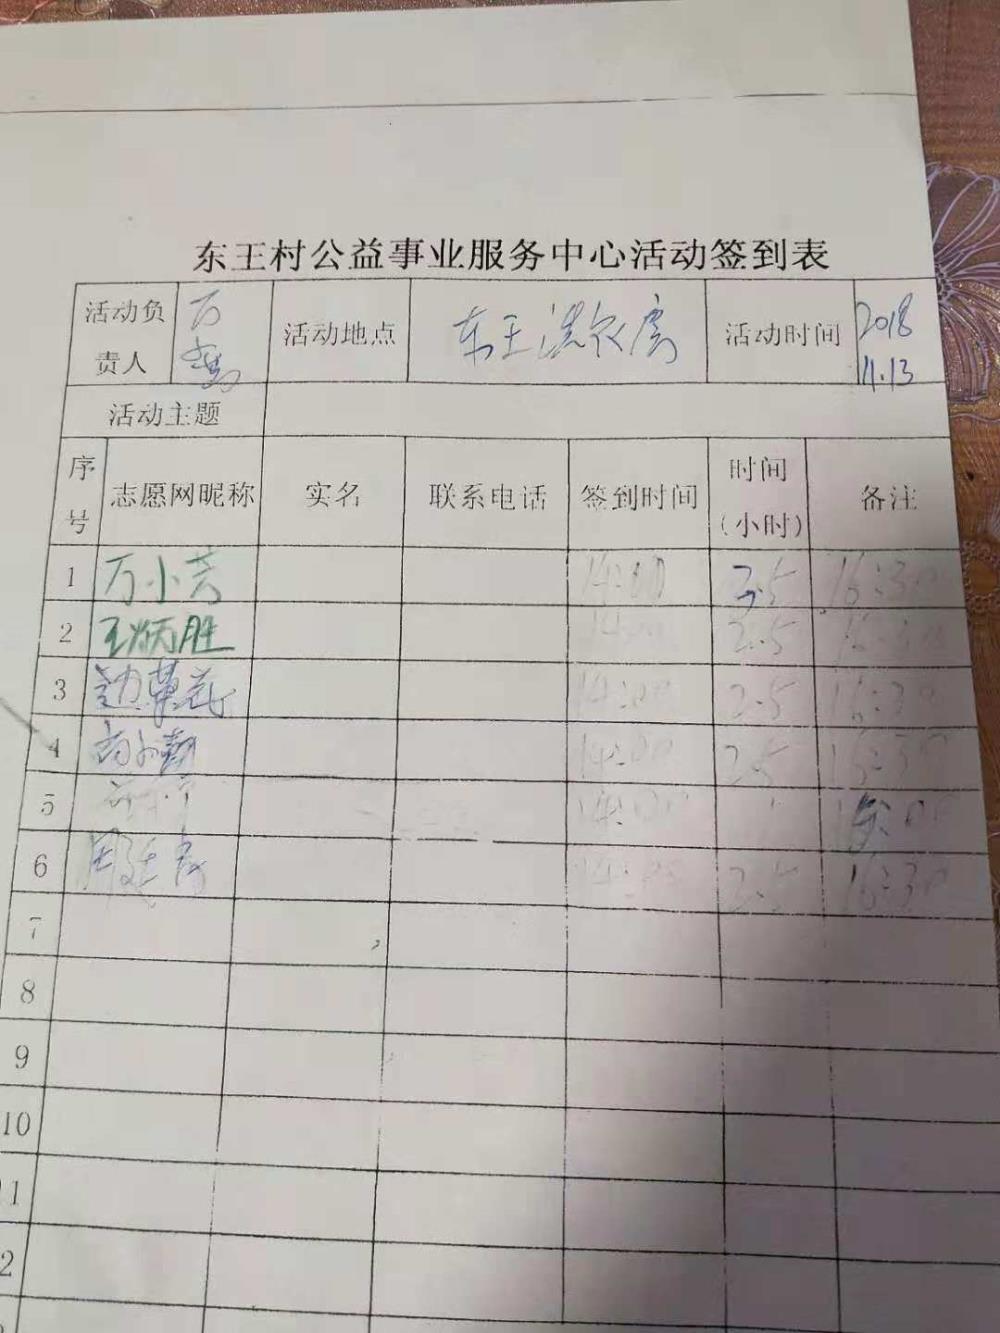 东王村公益事业服务中心活动签到表
活动负责人 万 活动地点 东王洗衣房 活动时间 2018 11.13
活动主题
序号 志愿网昵称 实名 联系电话 签到时间 时间(小时) 备注
1 万小芳 14:00 2.5 16:30
2 王炳胜 14:00 2.5 16:30
3 14:00 2.5 16:30
4 14:00 2.5 16:30
5 14:00
6 14:00 2.5 16:30
7
8
9
10
11
12